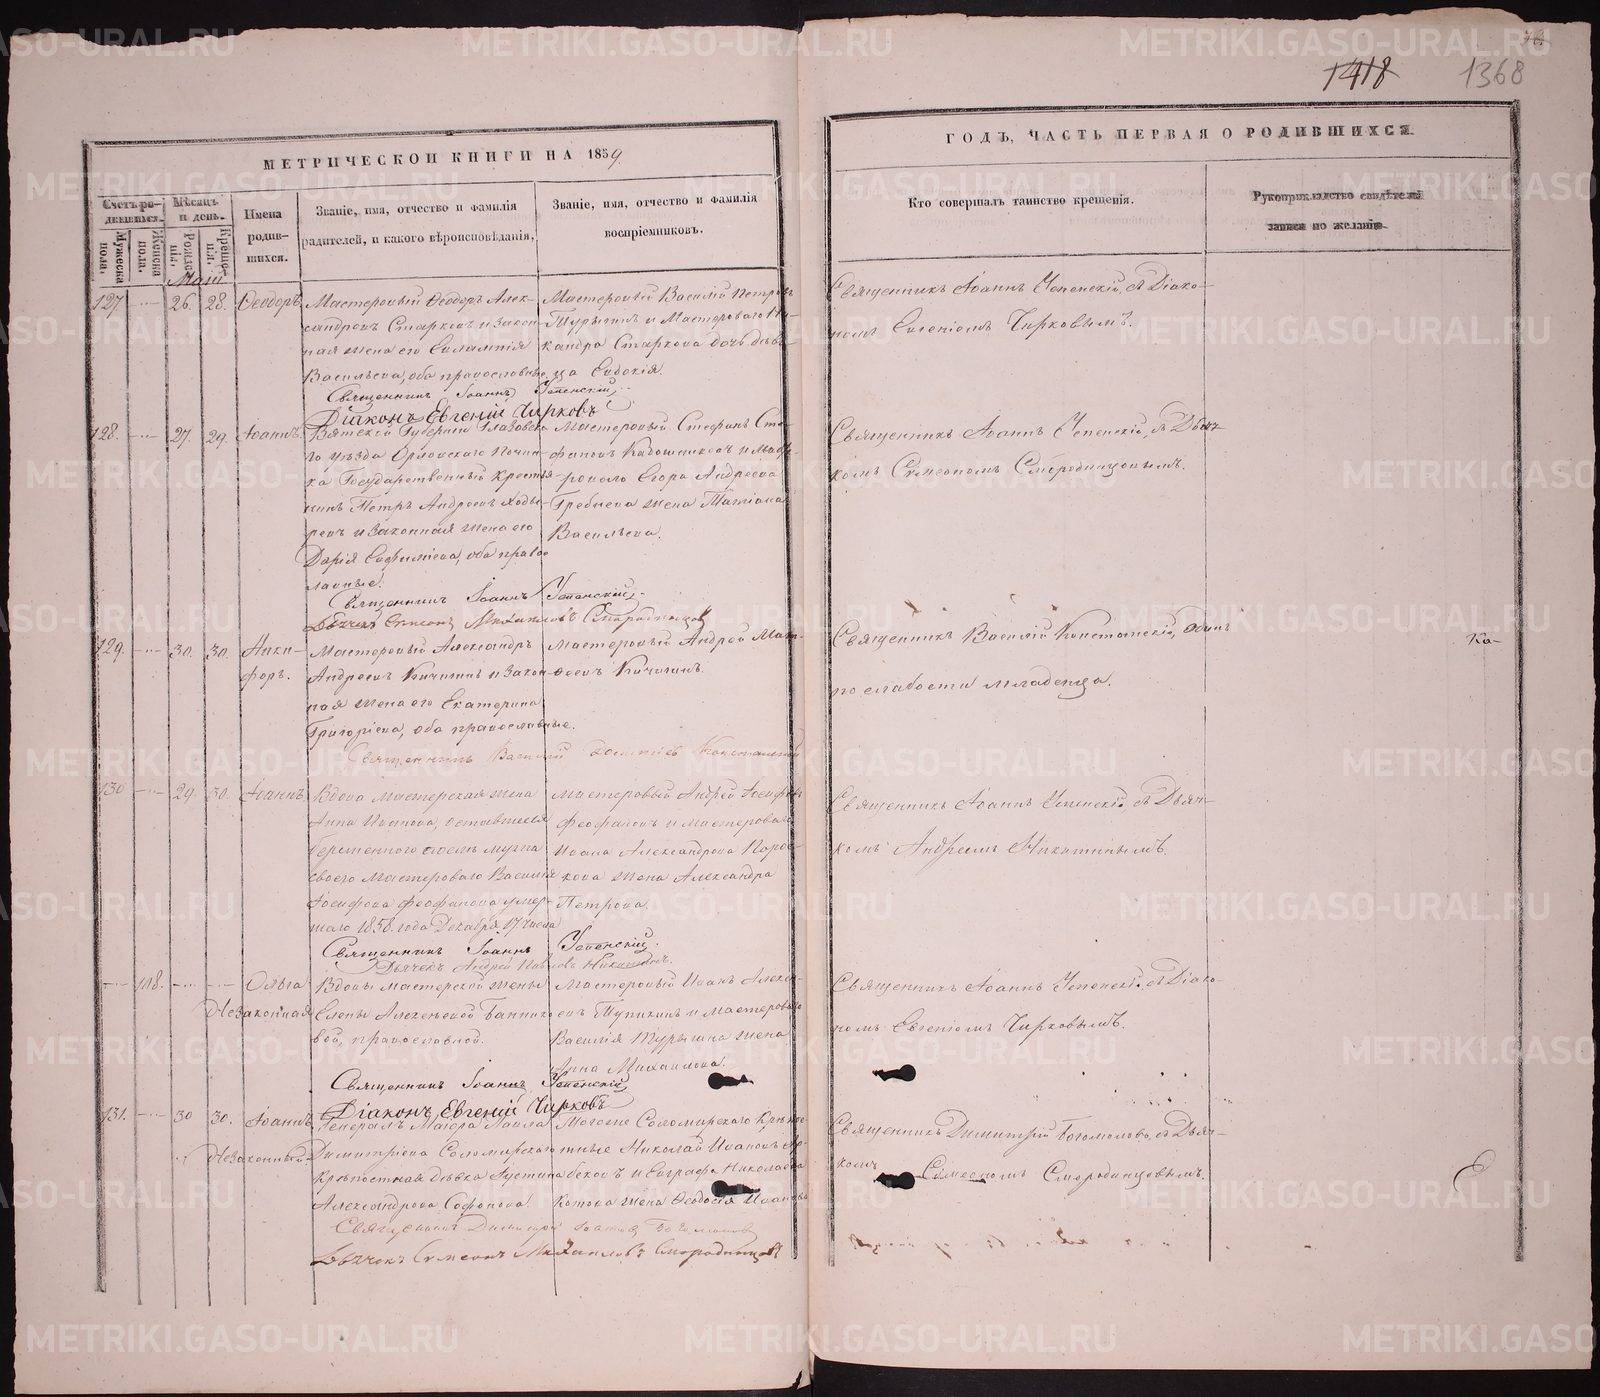 1418 1368
МЕТРИЧЕСКОЙ КНИГИ НА 1859.
ГОДЪ, ЧАСТЬ ПЕРВАЯ О РОДИВШИХСЯ.
Счетъ родившихся.
Мужеска пола.
Женска пола.
Мѣсяцъ и день.
Рожденія.
Крещенія.
Имена родившихся.
Званіе, имя, отчество и фамилія
родителей, и какого вѣроисповѣданія.
Званіе, имя, отчество и фамилія
воспріемниковъ.
Кто совершалъ таинство крещенія.
Рукоприкладство свидѣтелей
записи по желанію.
Маій
127 26. 28. Ѳеодоръ
Мастеровый Ѳеодоръ Алек-
сандровъ Старковъ и закон-
ная жена его Евлампія
Васильева, оба православные
Мастеровый Василій Петровъ
Турыгинъ и Мастероваго Ни-
кандра Старкова дочь дѣви-
ца Евдокія.
Священникъ Іоаннъ Успенскій, съ Діако-
номъ Евгеніемъ Чирковымъ.
Священникъ Іоаннъ Успенскій
Діаконъ Евгеній Чирковъ
128. 27. 29. Іоаннъ
Вятской Губерніи Глазовска-
го уѣзда Орловскаго Почин-
ка Государственный Крестья-
нинъ Петръ Андреевъ
и законная жена его
Дарія Евфиміева, оба право
лавные.
Мастеровый Стефанъ Сте-
фановъ Кадошниковъ и Масте-
роваго Егора Андреева
Гребнева жена Татіана
Васильева.
Священникъ Іоаннъ Успенскій, съ Дьяч-
комъ Симеономъ Смородинцовымъ.
Священникъ Іоаннъ Успенскій
Дьячекъ Симеонъ Михайловъ Смородинцовъ
129. 30. 30. Ники-
форъ.
Мастеровый Александръ
Андреевъ Кичигинъ и закон-
ная жена его Екатерина
Григоріева, оба православные.
Мастеровый Андрей Мат-
ѳеевъ Кичигинъ.
Священникъ Василій Констанскій, одинъ
по слабости младенца.
Ка-
Священникъ Василій
130 29. 30. Іоаннъ
Вдова мастерская жена
Анна Иванова, оставшаяся
беременною послѣ мужа
своего мастероваго Василія
Іосифова Феофанова умер-
шаго 1858. года Декабря 17. числа
Мастеровый Андрей Іосифовъ
Феофановъ и мастероваго
Ивана Александрова
жена Александра
Петрова.
Священникъ Іоаннъ Успенскій, съ Дьяч-
комъ Андреемъ Никитинымъ.
Священникъ Іоаннъ Успенскій.
Дьячекъ Андрей Павловъ Никитинъ.
118. Ольга
Незаконная
Вдовы мастерской жены
Елены Алексѣевой Баннико-
вой, православной.
Мастеровый Иванъ Алексѣ-
евъ Тупикинъ и мастероваго
Василія Турыгина жена
Анна Михайлова.
Священникъ Іоаннъ Успенскій, съ Діако-
номъ Евгеніемъ Чирковымъ.
Священникъ Іоаннъ Успенскій
Діаконъ Евгеній Чирковъ
131. 30 30. Іоаннъ
Незаконный
Генералъ Маіора Павла
Димитріева Соломирскаго
Крѣпостная дѣвка Іустина
Александрова Софонова.
Тогоже Соломирскаго Крѣпос-
тные Николай Ивановъ
и Евграфа Николаева
Котова жена Ѳеодосія Иванова
Священникъ Димитрій Богомоловъ, съ Дьяч-
комъ Симеономъ Смородинцовымъ.
Священникъ Димитрій Богомоловъ
Дьячекъ Симеонъ Михайловъ Смородинцовъ
METRIKI.GASO-URAL.RU